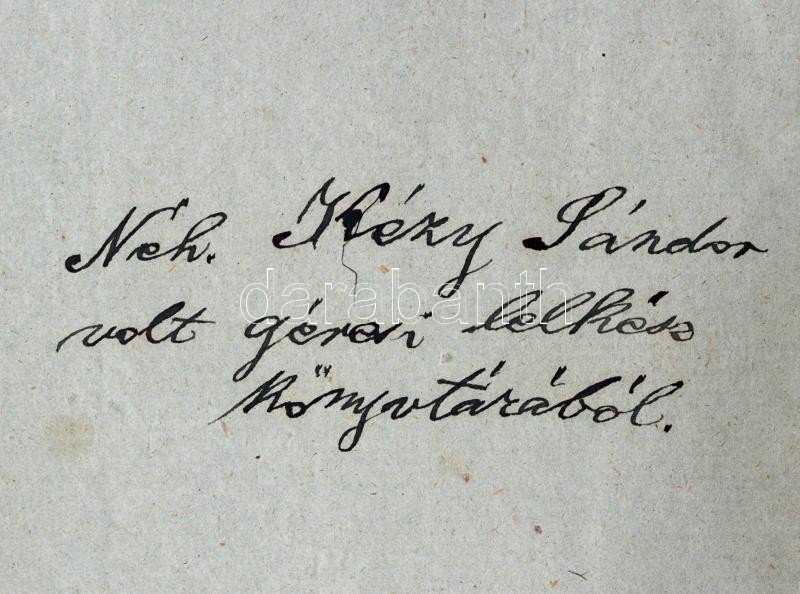 Néh. Kézy Sándor
volt gércei lelkész
könyvtárából.
darabanth